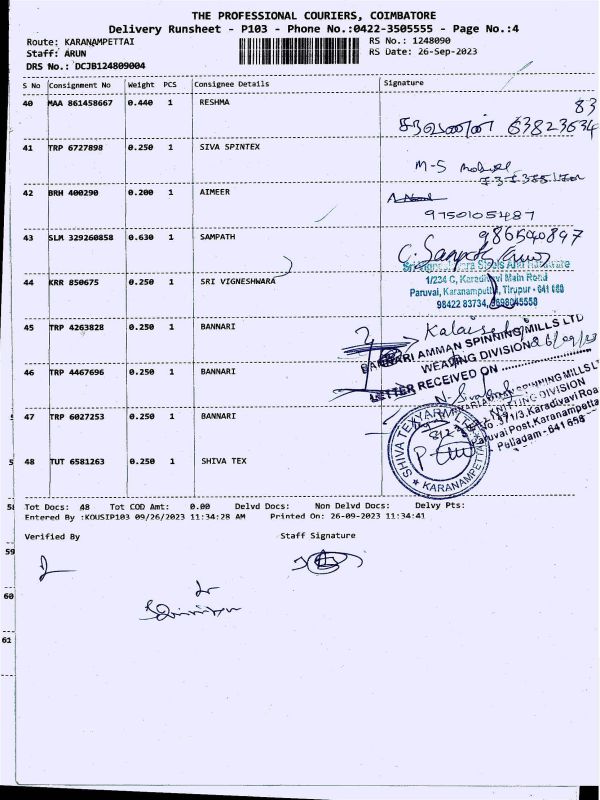 THE PROFESSIONAL COURIERS, COIMBATORE
Delivery Runsheet - P103 - Phone No.:0422-3505555 - Page No.:4
Route: KARANAMPETTAI
RS No.: 1248090
Staff: ARUN
RS Date: 26-Sep-2023
DRS No.: DCJB124809004
S No Consignment No Weight PCS Consignee Details Signature
40 MAA 861458667 0.440 1 RESHMA
83
சரவணன் 63823634
41 TRP 6727898 0.250 1 SIVA SPINTEX
M-S
42 BRH 400290 0.200 1 AIMEER
9750105487
43 SLM 329260858 0.630 1 SAMPATH
986540897
C. Sampath
1/234 C, Karadivavi Main Road
44 KRR 850675 0.250 1 SRI VIGNESHWARA
Paruvai, Karanamputtur, Tirupur - 641 668
98422 83734, 9698045558
45 TRP 4263828 0.250 1 BANNARI
BANNARI AMMAN SPINNING MILLS LTD
WEAVING DIVISION
46 TRP 4467696 0.250 1 BANNARI
LETTER RECEIVED ON
SPINNING MILLS L
KNITTING DIVISION
47 TRP 6027253 0.250 1 BANNARI
371/3, Karadivavi Roa
Paruvai Post, Karanampetta
Palladam - 641 658
48 TUT 6581263 0.250 1 SHIVA TEX
SHIVA TEXYARN
KARANAMPETTAI
58 Tot Docs: 48 Tot COD Amt: 0.00 Delvd Docs: Non Delvd Docs: Delvy Pts:
Entered By :KOUSIP103 09/26/2023 11:34:28 AM Printed On: 26-09-2023 11:34:41
Verified By Staff Signature
59
60
61